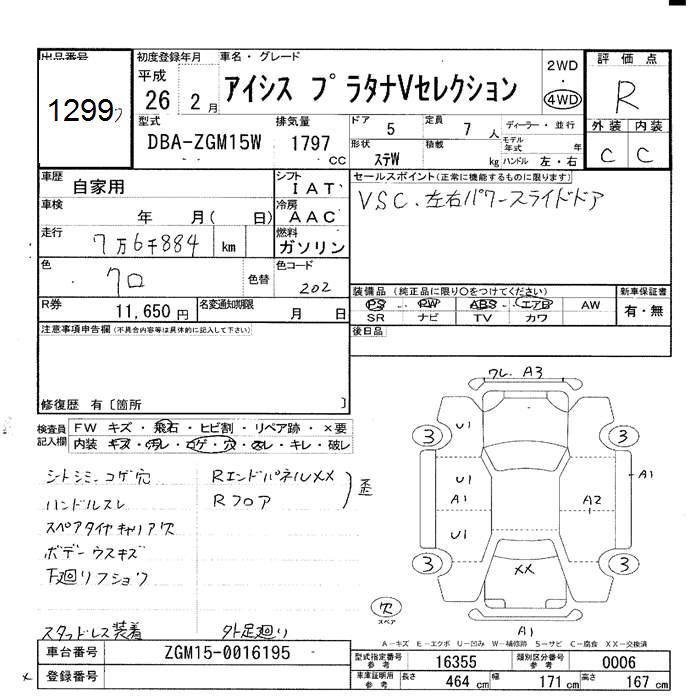 出品番号
1299
初度登録年月
平成
26 2 月
車名・グレード
アイシス プラタナVセレクション
2WD
・
4WD
評価点
R
外装 内装
C C
型式
DBA-ZGM15W
排気量
1797
cc
ドア 5
定員 7 人
ディーラー・並行
形状
ステW
積載
kg
モデル年式 年
ハンドル 左・右
車歴
自家用
シフト
IAT
車検
年 月( 日)
冷房
AAC
走行
7万6千884 km
燃料
ガソリン
色
クロ
色替
色コード
202
R券
11,650 円
名変通知期限
月 日
セールスポイント(正常に機能するものに限ります)
VSC.左右パワースライドドア
装備品(純正品に限り○をつけてください)
PS PW ABS エアB AW
SR ナビ TV カワ
新車保証書
有・無
後日品
注意事項申告欄(不具合内容等は具体的に記入して下さい)
修復歴 有〔箇所 〕
検査員記入欄
FW キズ・飛石・ヒビ割・リペア跡・×要
内装 キズ・汚レ・コゲ・穴・スレ・キレ・破レ
シトシミ.コゲ穴
ハンドルスレ
スペアタイヤキャリア欠
ボデーウスキズ
下廻リフショク
スタッドレス装着
RエンドパネルXX
Rフロア
歪
外足廻り
ワレ. A3
U1
3
3
U1
A1
A1
A2
U1
3
3
XX
欠
スペア
A1
A-キズ E-エクボ U-凹み W-補修跡 S-サビ C-腐食 XX-交換済
車台番号
ZGM15-0016195
登録番号
x
型式指定番号
参考
16355
類別区分番号
参考
0006
車庫証明用
参考
長さ 464 cm 幅 171 cm 高さ 167 cm